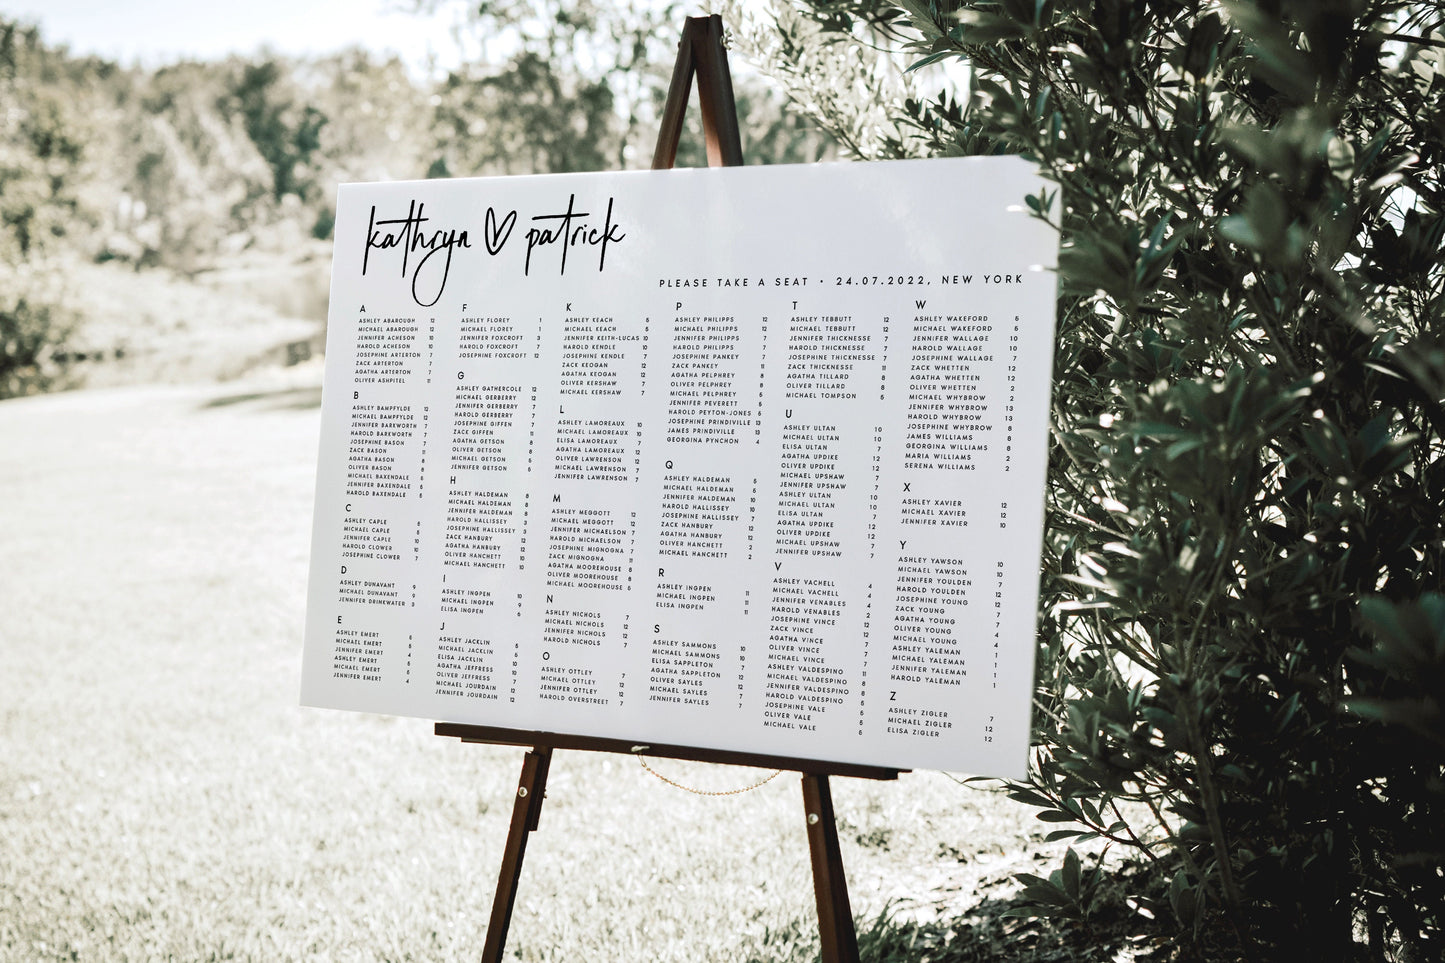 kathryn patrick
PLEASE TAKE A SEAT • 24.07.2022, NEW YORK
A
ASHLEY ABAROUGH 12
MICHAEL ABAROUGH 12
JENNIFER ACHESON 10
HAROLD ACHESON 10
JOSEPHINE ARTERTON 7
ZACK ARTERTON 7
AGATHA ARTERTON 7
OLIVER ASHPITEL 11
B
ASHLEY BAMPFYLDE 12
MICHAEL BAMPFYLDE 12
JENNIFER BARKWORTH 7
HAROLD BARKWORTH 7
JOSEPHINE BASON 7
ZACK BASON 11
AGATHA BASON 8
OLIVER BASON 8
MICHAEL BAXENDALE 6
JENNIFER BAXENDALE 6
HAROLD BAXENDALE 6
C
ASHLEY CAPLE 6
MICHAEL CAPLE 6
JENNIFER CAPLE 10
HAROLD CLOWER 10
JOSEPHINE CLOWER 7
D
ASHLEY DUNAVANT 9
MICHAEL DUNAVANT 9
JENNIFER DRINKWATER 3
E
ASHLEY EMERT 6
MICHAEL EMERT 6
JENNIFER EMERT 4
ASHLEY EMERT 6
MICHAEL EMERT 6
JENNIFER EMERT 4
F
ASHLEY FLOREY 1
MICHAEL FLOREY 1
JENNIFER FOXCROFT 3
HAROLD FOXCROFT 7
JOSEPHINE FOXCROFT 12
G
ASHLEY GATHERCOLE 12
MICHAEL GERBERRY 12
JENNIFER GERBERRY 7
HAROLD GERBERRY 7
JOSEPHINE GIFFEN 7
ZACK GIFFEN 11
AGATHA GETSON 8
OLIVER GETSON 8
MICHAEL GETSON 6
JENNIFER GETSON 6
H
ASHLEY HALDEMAN 8
MICHAEL HALDEMAN 8
JENNIFER HALDEMAN 8
HAROLD HALLISSEY 3
JOSEPHINE HALLISSEY 3
ZACK HANBURY 12
AGATHA HANBURY 12
OLIVER HANCHETT 10
MICHAEL HANCHETT 10
I
ASHLEY INGPEN 10
MICHAEL INGPEN 9
ELISA INGPEN 6
J
ASHLEY JACKLIN 6
MICHAEL JACKLIN 6
ELISA JACKLIN 6
AGATHA JEFFRESS 10
OLIVER JEFFRESS 7
MICHAEL JOURDAIN 12
JENNIFER JOURDAIN 12
K
ASHLEY KEACH 6
MICHAEL KEACH 6
JENNIFER KEITH-LUCAS 10
HAROLD KENDLE 10
JOSEPHINE KENDLE 7
ZACK KEOGAN 12
AGATHA KEOGAN 12
OLIVER KERSHAW 7
MICHAEL KERSHAW 7
L
ASHLEY LAMOREAUX 10
MICHAEL LAMOREAUX 10
ELISA LAMOREAUX 7
AGATHA LAMOREAUX 12
OLIVER LAWRENSON 12
MICHAEL LAWRENSON 7
JENNIFER LAWRENSON 7
M
ASHLEY MEGGOTT 12
MICHAEL MEGGOTT 12
JENNIFER MICHAELSON 7
HAROLD MICHAELSON 7
JOSEPHINE MIGNOGNA 7
ZACK MIGNOGNA 11
AGATHA MOOREHOUSE 8
OLIVER MOOREHOUSE 8
MICHAEL MOOREHOUSE 6
N
ASHLEY NICHOLS 7
MICHAEL NICHOLS 12
JENNIFER NICHOLS 12
HAROLD NICHOLS 7
O
ASHLEY OTTLEY 7
MICHAEL OTTLEY 12
JENNIFER OTTLEY 12
HAROLD OVERSTREET 7
P
ASHLEY PHILIPPS 12
MICHAEL PHILIPPS 12
JENNIFER PHILIPPS 7
HAROLD PHILIPPS 7
JOSEPHINE PANKEY 7
ZACK PANKEY 11
AGATHA PELPHREY 8
OLIVER PELPHREY 8
MICHAEL PELPHREY 6
JENNIFER PEVERETT 6
HAROLD PEYTON-JONES 6
JOSEPHINE PRINDIVILLE 13
JAMES PRINDIVILLE 13
GEORGINA PYNCHON 4
Q
ASHLEY HALDEMAN 6
MICHAEL HALDEMAN 6
JENNIFER HALDEMAN 10
HAROLD HALLISSEY 10
JOSEPHINE HALLISSEY 7
ZACK HANBURY 12
AGATHA HANBURY 12
OLIVER HANCHETT 2
MICHAEL HANCHETT 2
R
ASHLEY INGPEN 11
MICHAEL INGPEN 11
ELISA INGPEN 11
S
ASHLEY SAMMONS 10
MICHAEL SAMMONS 10
ELISA SAPPLETON 7
AGATHA SAPPLETON 12
OLIVER SAYLES 12
MICHAEL SAYLES 7
JENNIFER SAYLES 7
T
ASHLEY TEBBUTT 12
MICHAEL TEBBUTT 12
JENNIFER THICKNESSE 7
HAROLD THICKNESSE 7
JOSEPHINE THICKNESSE 7
ZACK THICKNESSE 11
AGATHA TILLARD 8
OLIVER TILLARD 8
MICHAEL TOMPSON 6
U
ASHLEY ULTAN 10
MICHAEL ULTAN 10
ELISA ULTAN 7
AGATHA UPDIKE 12
OLIVER UPDIKE 12
MICHAEL UPSHAW 7
JENNIFER UPSHAW 7
ASHLEY ULTAN 10
MICHAEL ULTAN 10
ELISA ULTAN 7
AGATHA UPDIKE 12
OLIVER UPDIKE 12
MICHAEL UPSHAW 7
JENNIFER UPSHAW 7
V
ASHLEY VACHELL 4
MICHAEL VACHELL 4
JENNIFER VENABLES 4
HAROLD VENABLES 2
JOSEPHINE VINCE 7
ZACK VINCE 12
AGATHA VINCE 7
OLIVER VINCE 7
MICHAEL VINCE 7
ASHLEY VALDESPINO 11
MICHAEL VALDESPINO 8
JENNIFER VALDESPINO 8
HAROLD VALDESPINO 6
JOSEPHINE VALE 6
OLIVER VALE 6
MICHAEL VALE 6
W
ASHLEY WAKEFORD 6
MICHAEL WAKEFORD 6
JENNIFER WALLAGE 10
HAROLD WALLAGE 10
JOSEPHINE WALLAGE 7
ZACK WHETTEN 12
AGATHA WHETTEN 12
OLIVER WHETTEN 2
MICHAEL WHYBROW 2
JENNIFER WHYBROW 13
HAROLD WHYBROW 13
JOSEPHINE WHYBROW 8
JAMES WILLIAMS 8
GEORGINA WILLIAMS 8
MARIA WILLIAMS 2
SERENA WILLIAMS 2
X
ASHLEY XAVIER 12
MICHAEL XAVIER 12
JENNIFER XAVIER 10
Y
ASHLEY YAWSON 10
MICHAEL YAWSON 10
JENNIFER YOULDEN 7
HAROLD YOULDEN 12
JOSEPHINE YOUNG 12
ZACK YOUNG 7
AGATHA YOUNG 7
OLIVER YOUNG 4
MICHAEL YOUNG 4
ASHLEY YALEMAN 1
MICHAEL YALEMAN 1
JENNIFER YALEMAN 1
HAROLD YALEMAN 1
Z
ASHLEY ZIGLER 7
MICHAEL ZIGLER 12
ELISA ZIGLER 12